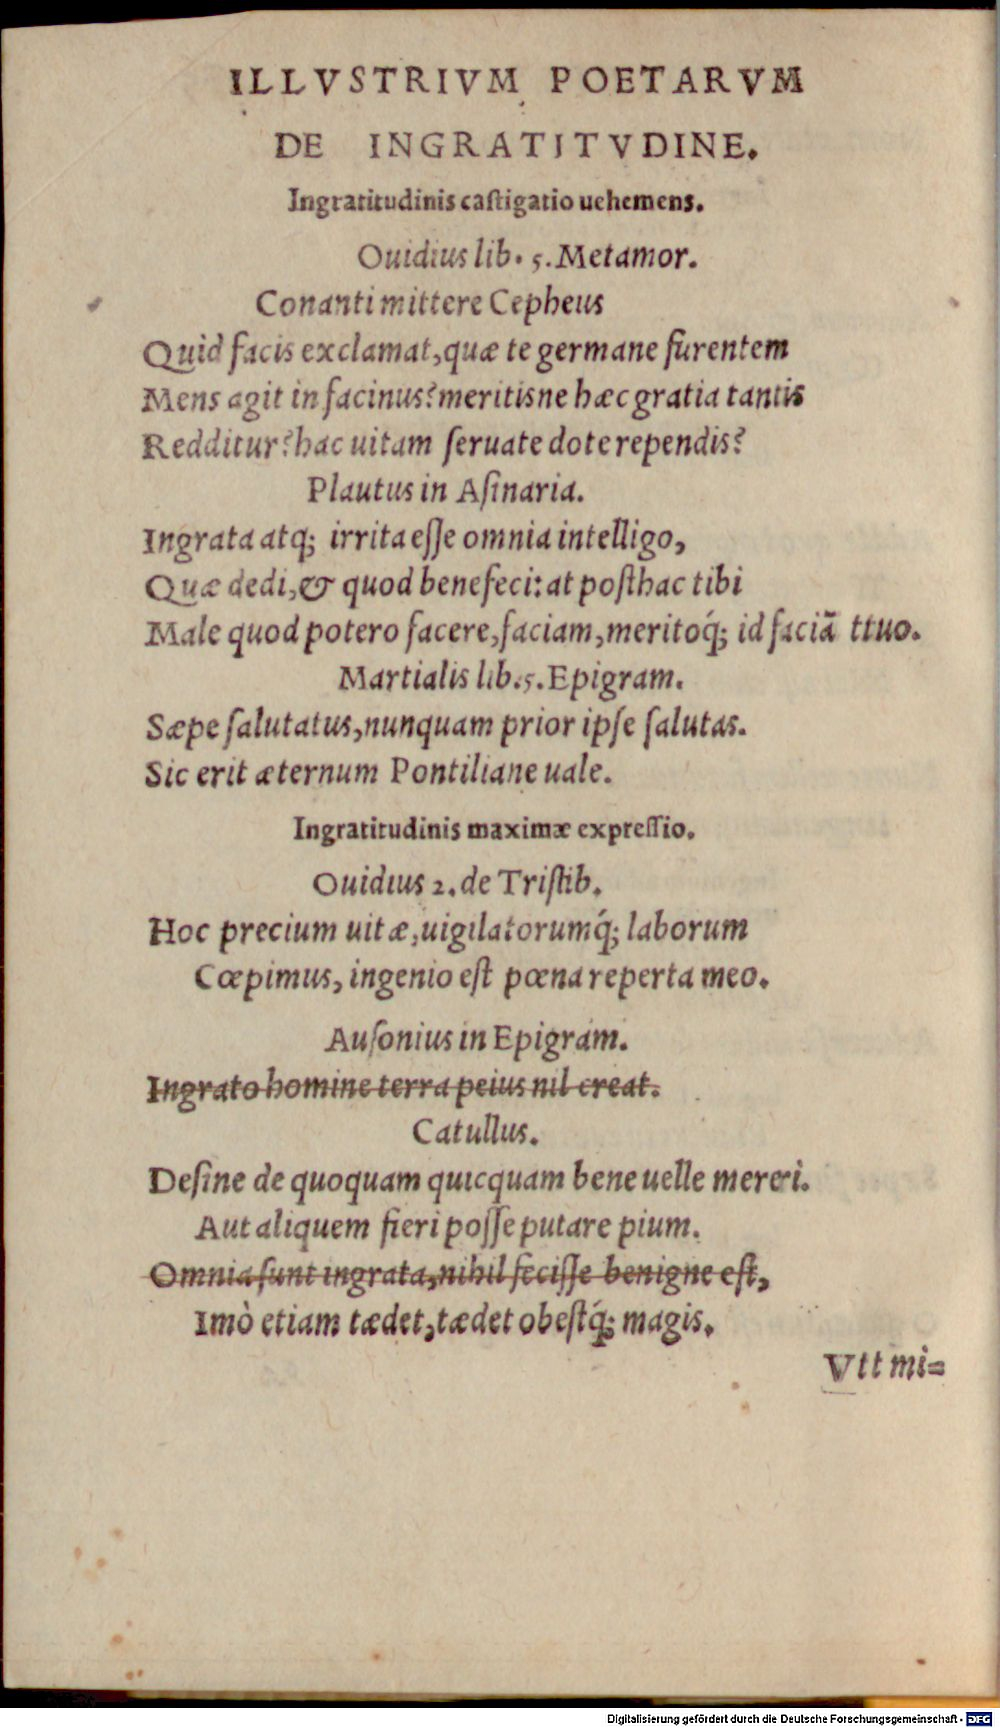 ILLVSTRIVM POETARVM
DE INGRATITVDINE.
Ingratitudinis castigatio uehemens.
Ouidius lib. 5. Metamor.
Conanti mittere Cepheus
Quid facis exclamat, quæ te germane furentem
Mens agit in facinus? meritisne hæc gratia tantis
Redditur? hac uitam seruate dote rependis?
Plautus in Asinaria.
Ingrata atq; irrita esse omnia intelligo,
Quæ dedi, & quod benefeci: at posthac tibi
Male quod potero facere, faciam, meritoq́; id faciã ttuo.
Martialis lib. 5. Epigram.
Sæpe salutatus, nunquam prior ipse salutas.
Sic erit æternum Pontiliane uale.
Ingratitudinis maximæ expressio.
Ouidius 2. de Tristib.
Hoc precium uitæ, uigilatorumq́; laborum
Cœpimus, ingenio est pœna reperta meo.
Ausonius in Epigram.
Ingrato homine terra peius nil creat.
Catullus.
Desine de quoquam quicquam bene uelle mereri.
Aut aliquem fieri posse putare pium.
Omnia sunt ingrata, nihil fecisse benigne est,
Imò etiam tædet, tædet obestq́; magis.
Vtt mi=
Digitalisierung gefördert durch die Deutsche Forschungsgemeinschaft - DFG